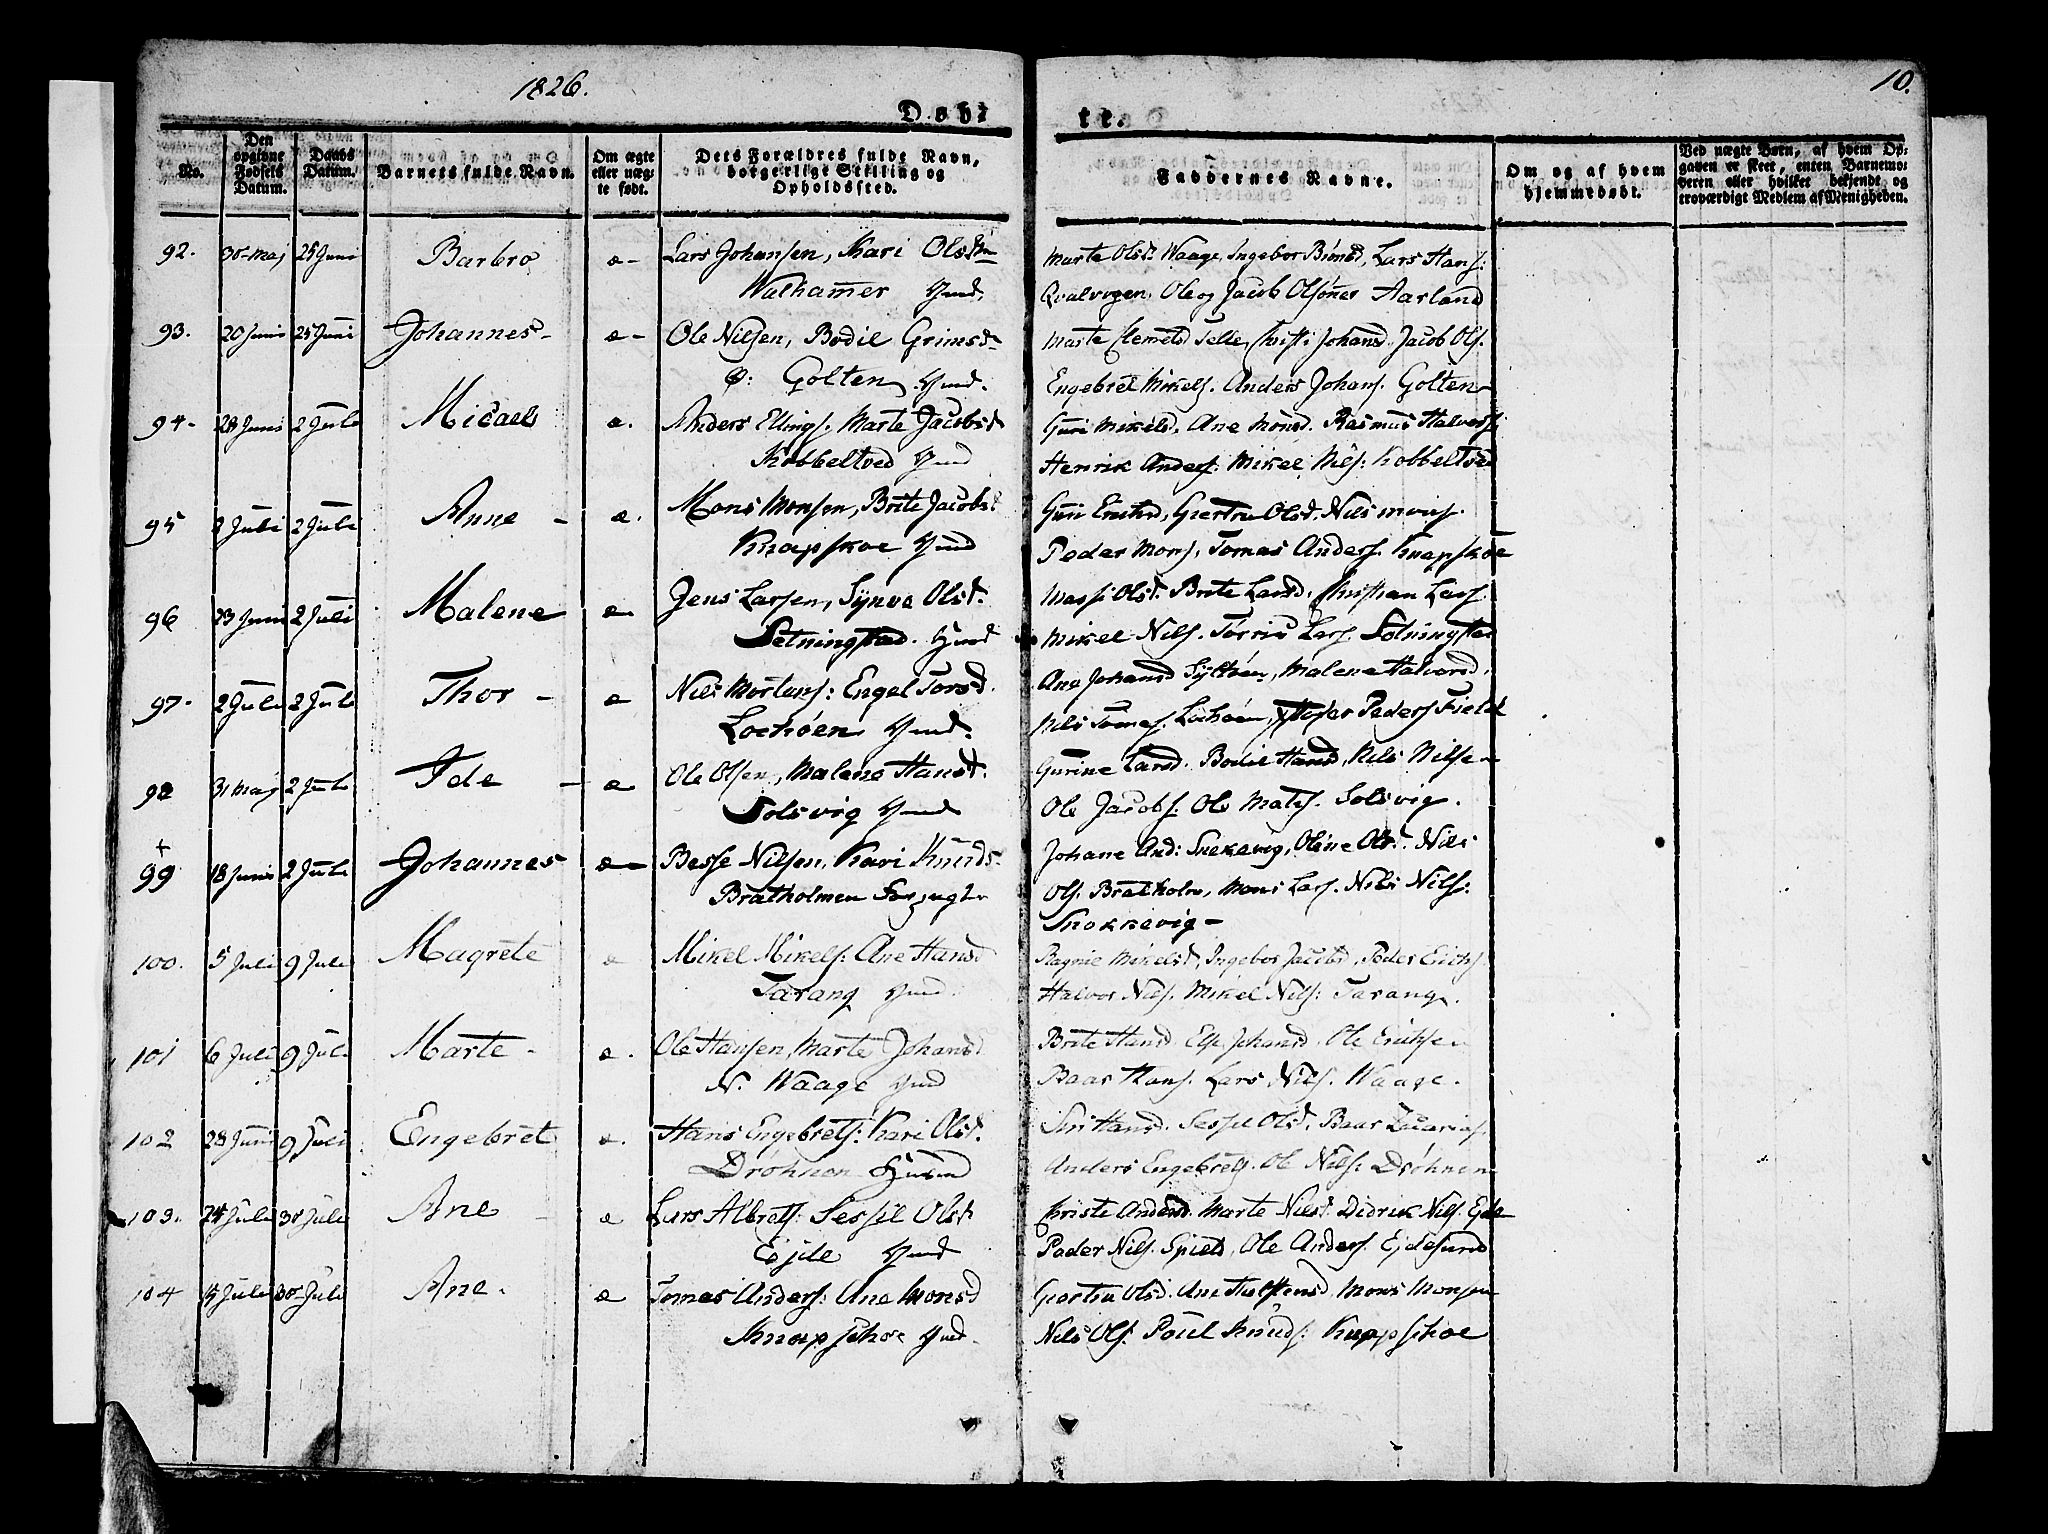 1826.
10.
Døbte.
No.
Den opgivne Fødsels Datum.
Daabs Datum.
Barnets fulde Navn.
Om ægte eller uægte født.
Dets Forældres fulde Navn, borgerlige Stilling og Opholdssted.
Faddernes Navne.
Om og af hvem hjemmedøbt.
Ved uægte Børn, af hvem Opgaven er skeet, enten Barnemoderen eller hvilket bekjendt og troværdigt Medlem af Menigheden.
92. 30 maj 25 Juni Barbro æ- Lars Johansen, Kari Olsd
Walhammer Hmd.
Marte Olsd. Waage, Ingebor Lars Hans:
Qvalvogen, Ole og Jacob Aarland
93. 20 Juni 25 Juni Johannes- æ- Ole Nilsen, Bodil Grimsd-
Ø: Golten Hmd.
Marte Clemetsd Telle, Christi Johansd. Jacob Ols.
Engebret Mikels. Anders Johans. Golten
94- 28 Juni 2 Juli Micael æ. Anders Ellings. Marte Jacobsd
Kobbeltved Hmd
Guri Mikelsd, Ane Monsd. Rasmus Halvors:
Henrik Anders: Mikel Nils: Kobbeltved
95 2 Juli 2 Juli Anne - æ. Mons Monsen, Brite Jacobsd
Knapskoe Hmd
Guri Gjertru Olsd, Nils
Peder Mons, Tomas Anders. Knapskoe
96 23 Juni 2 Juli Malene æ Jens Larsen, Synva Olsd.
Setningstad. Hmd
Olsd. Brite Larsd, Christian Lars.
Mikel Nils. Lars.
97- 2 Juli 2 Juli Thor - æ Nils Mortens: Engel Torsd.
Lochøen Hmd.
Ane Johansd Malene Halvorsd.
Nils Lochøen, Peders Field
98 31 maj 2 Juli Ide - æ Ole Olsen, Malene Hansd.
Solsvig Hmd
Gurine Larsd. Bodil Hansd, Nils Nilsen
Ole Jacobs. Ole Mats. Solsvig.
+
99 18 Juni 2 Juli Johannes æ- Besse Nilsen, Kari Knuds-
Bratholmen
Johane And: Snekevig, Oline Olsd. Nils
Ols. Bratholm, Mons Lars. Nils Nils:
Snekkevig-
100. 5 Juli 9 Juli Magrete æ Mikel Mikels: Ane Hansd
Tarang Hmd.
Ragnie Mikelsd, Ingebor Jacobsd, Peder
Halvor Nils. Mikel Nils: Tarang.
101 6 Juli 9 Juli Marte - æ. Ole Hansen, Marte Johansd
N. Waage Hmd
Brite Hansd. Else Johansd. Ole Eriksen
Baar Hans. Lars Nils. Waage.
102 28 Juni 9 Juli Engebret æ. Hans Engebrets: Kari Olsd.
Drøhnen Husmd
Siri Hansd. Olsd. Baar Zacarias.
Anders Engebrets. Ole Nils: Drøhnen
103. 24 Juli 30 Juli Ane - æ Lars Albrets: Sessil Olsd
Ejde Hmd
Christe Andersd. Marte Nilsd. Didrik Nils. Ejde
Peder Nils. Spield, Ole Anders. Ejdesund
104 15 Juli 30 Juli Ane- æ Tomas Anders: Ane Monsd
Knapschoe Hmd.
Giertru Olsd. Ane Mons Monsen
Nils Ols. Poul Knuds: Knapschoe